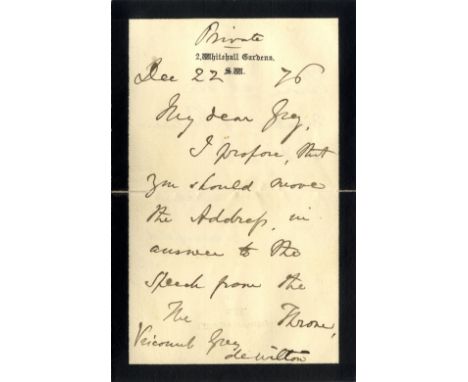 Private
2, Whitehall Gardens.
S.W.
Dec 22 76
My dear Grey,
I propose, that
you should move
the Address, in
answer to the
Speech from the
The Throne,
Viscount Grey
de Wilton